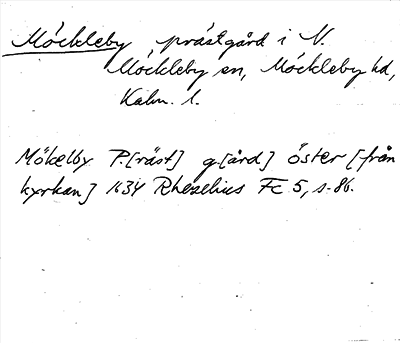 Möckleby prästgård i N.
Möckleby sn, Möckleby hd,
Kalm. l.
Mökelby P.[räst] g[ård] öster [från
kyrkan] 1634 Rhezelius Fc 5, s. 86.